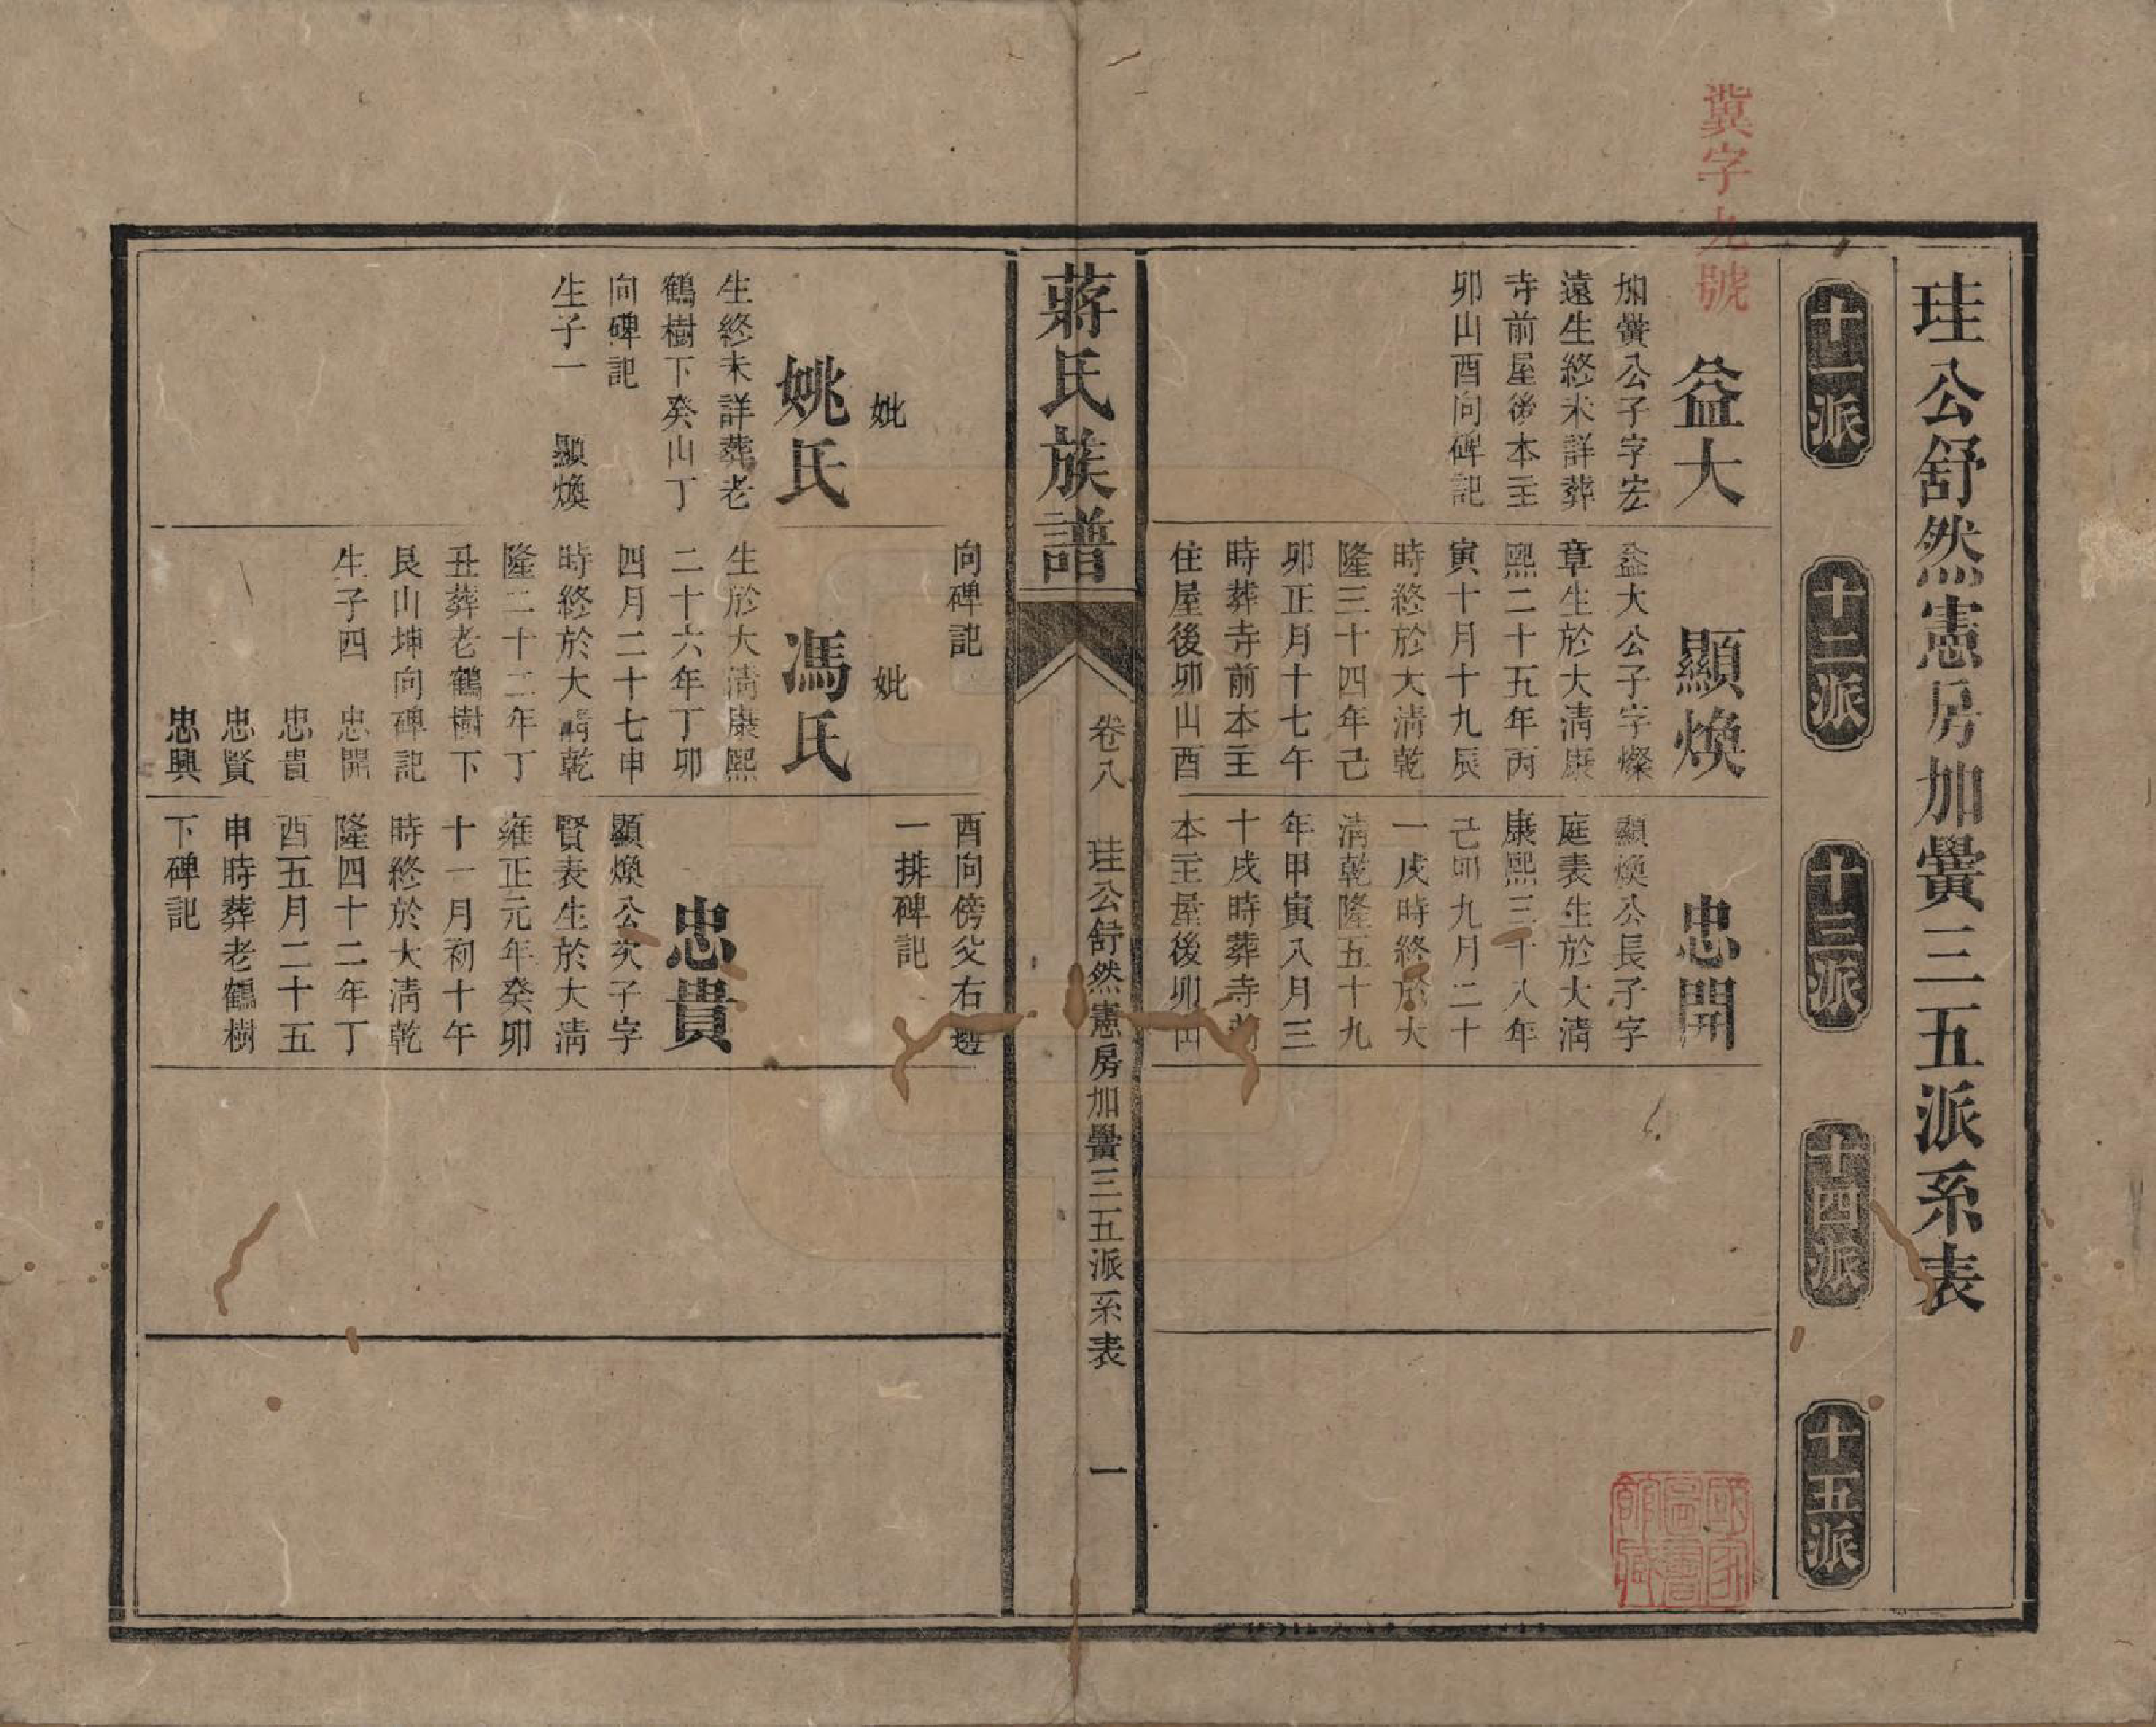 冀字九號
珪公舒然憲房加黌三五派系表
十一派
十二派
十三派
十四派
十五派
益大
加黌公子字宏
遠生終未詳葬
寺前屋後本主
卯山酉向碑記
顯煥
益大公子字燦
章生於大淸康
熙二十五年丙
寅十月十九辰
時終於大淸乾
隆三十四年己
卯正月十七午
時葬寺前本主
住屋後卯山酉
忠開
顯煥公長子字
庭表生於大淸
康熙三十八年
己卯九月二十
一戌時終於大
淸乾隆五十九
年甲寅八月三
十戌時葬寺前
本主屋後卯山
蔣氏族譜
卷八
珪公舒然憲房加黌三五派系表
一
妣
姚氏
生終未詳葬老
鶴樹下癸山丁
向碑記
生子一 顯煥
向碑記
妣
馮氏
生於大淸康熙
二十六年丁卯
四月二十七申
時終於大淸乾
隆二十二年丁
丑葬老鶴樹下
艮山坤向碑記
生子四 忠開
忠貴
忠賢
忠興
酉向傍父右邊
一排碑記
忠貴
顯煥公次子字
賢表生於大淸
雍正元年癸卯
十一月初十午
時終於大淸乾
隆四十二年丁
酉五月二十五
申時葬老鶴樹
下碑記
國家
圖書
館藏